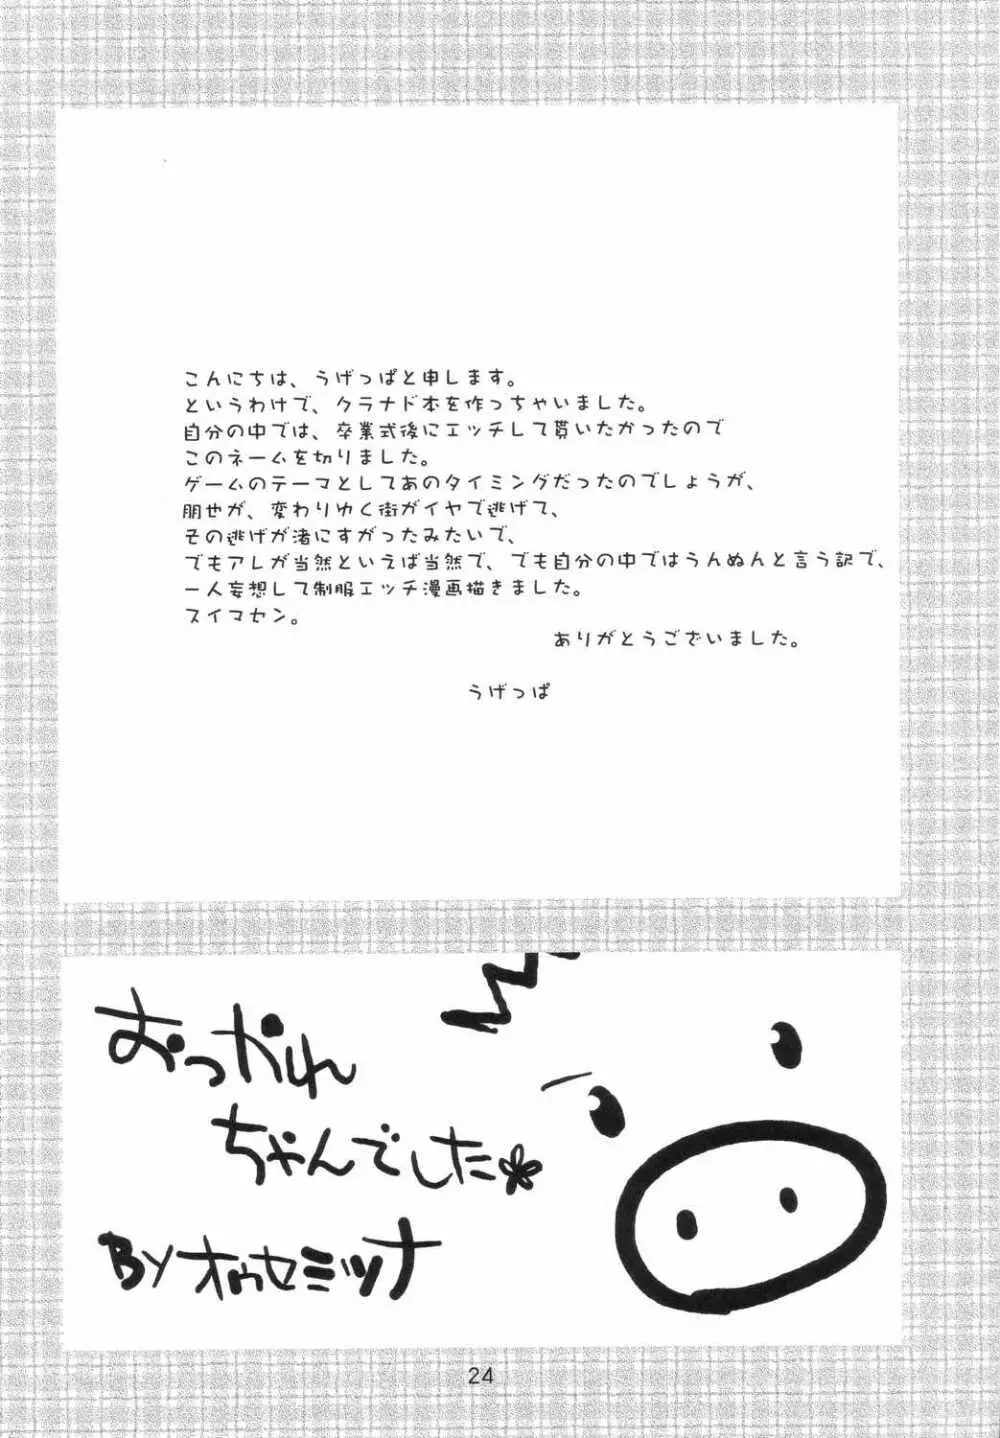 こんにちは、うげっぱと申します。
というわけで、クラナド本を作っちゃいました。
自分の中では、卒業式後にエッチして貰いたかったので
このネームを切りました。
ゲームのテーマとしてあのタイミングだったのでしょうが、
朋也が、変わりゆく街がイヤで逃げて、
その逃げが渚にすがったみたいで、
でもアレが当然といえば当然で、でも自分の中ではうんぬんと言う訳で、
一人妄想して制服エッチ漫画描きました。
スイマセン。
ありがとうございました。
うげっぱ
おつかれ
ちゃんでした
BY オゥセミツナ
24